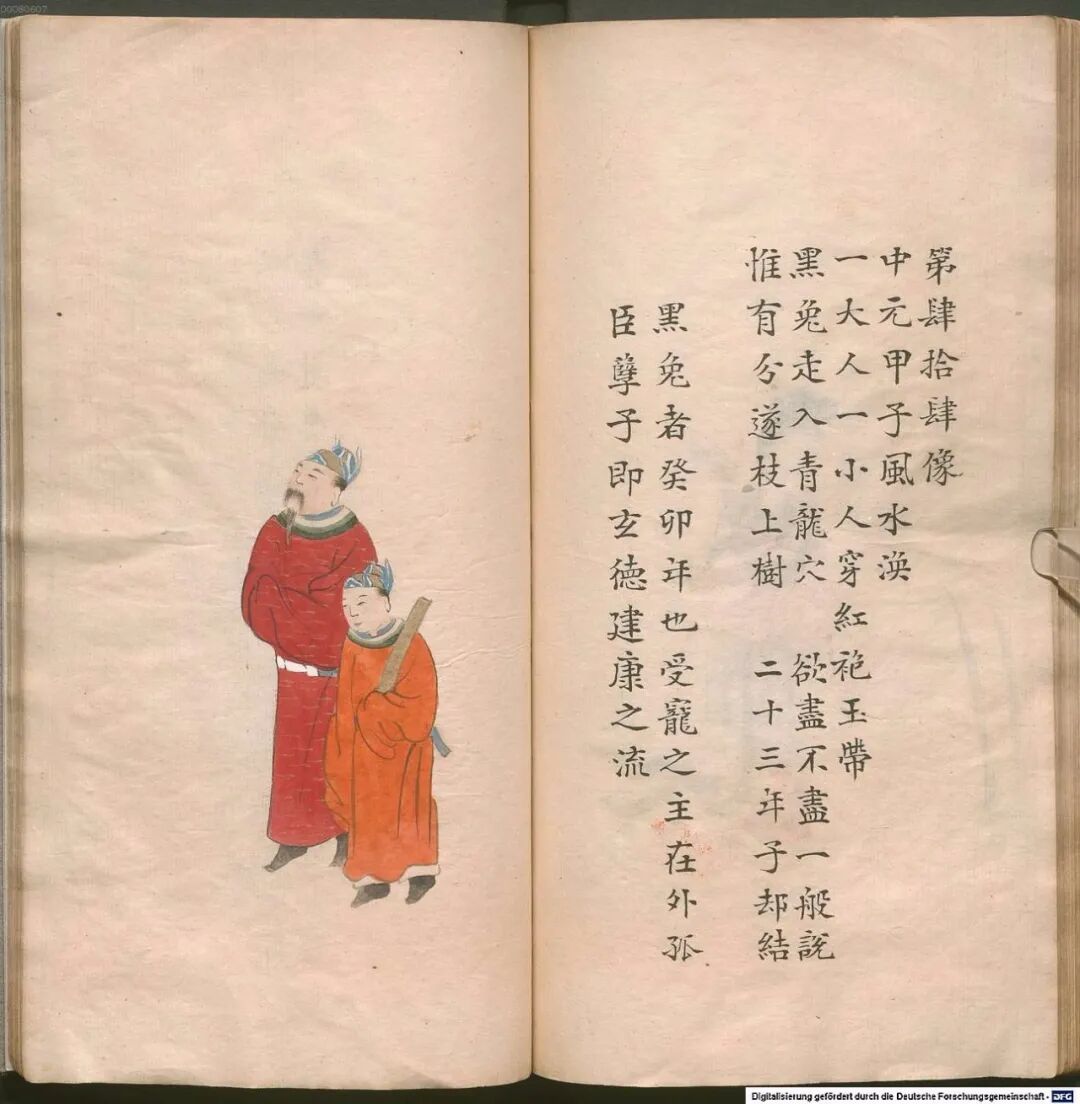 第肆拾肆像
中元甲子風水渙
一大人一小人穿紅袍玉帶
黑兔走入青龍穴 欲盡不盡一般説
惟有分遂枝上樹 二十三年子却結
黑兔者癸卯年也受寵之主在外孤
臣孽子即玄德建康之流
00080607
Digitalisierung gefördert durch die Deutsche Forschungsgemeinschaft - DFG